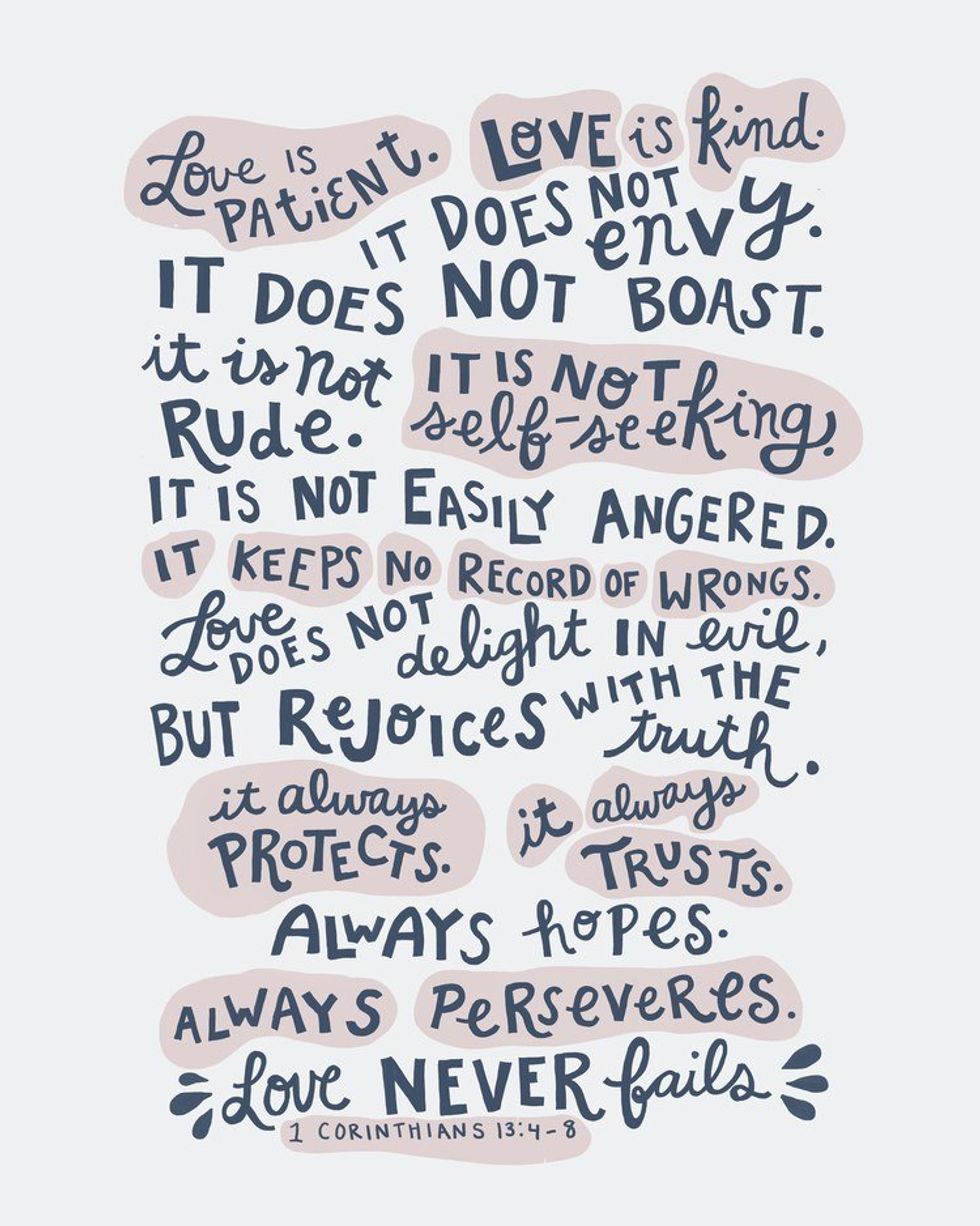 Love IS PATIENT. LOVE is kind.
IT DOES NOT envy.
IT DOES NOT BOAST.
it is not RUDE. IT IS NOT self-seeking.
IT IS NOT EASILY ANGERED.
IT KEEPS NO RECORD OF WRONGS.
Love DOES NOT delight IN evil,
BUT REJOICES WITH THE truth.
it always PROTECTS. it always TRUSTS.
ALWAYS hOPES.
ALWAYS PERSEVERES.
Love NEVER fails
1 CORINTHIANS 13:4-8